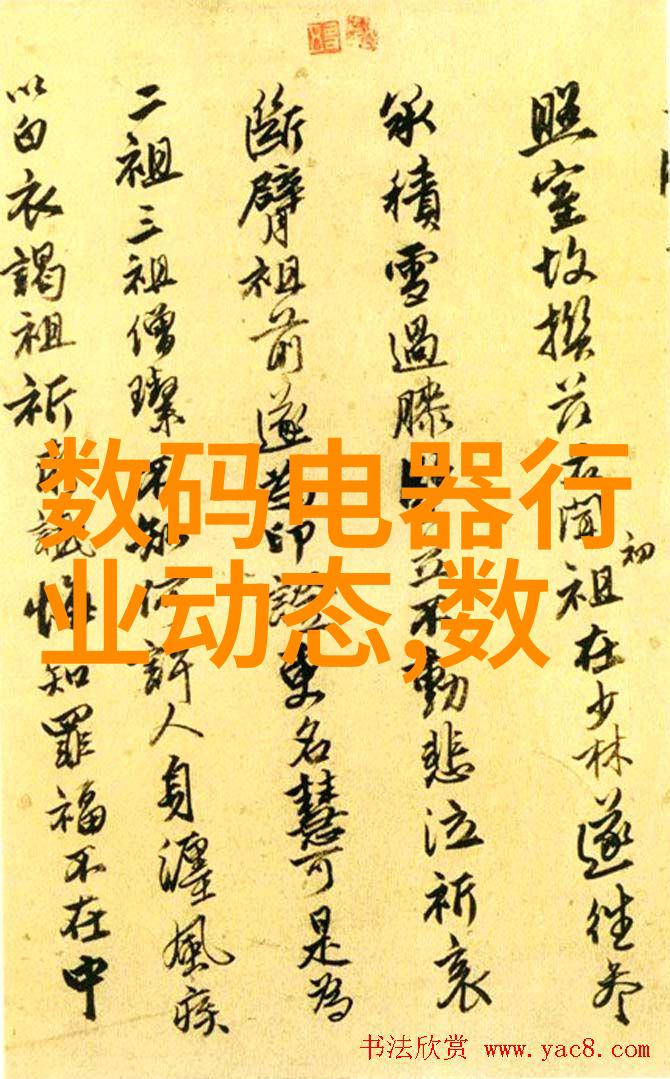 照室故撰 后聞祖初在少林遂往參
承積雪過膝 立不動悲泣祈哀
斷臂祖前遂為印證更名慧可是為
二祖三祖僧璨不知何許人身纏風疾
以白衣謁祖祈 懺悔知罪福不在中
数码电器行
业动态,数
书法欣赏 www.yac8.com